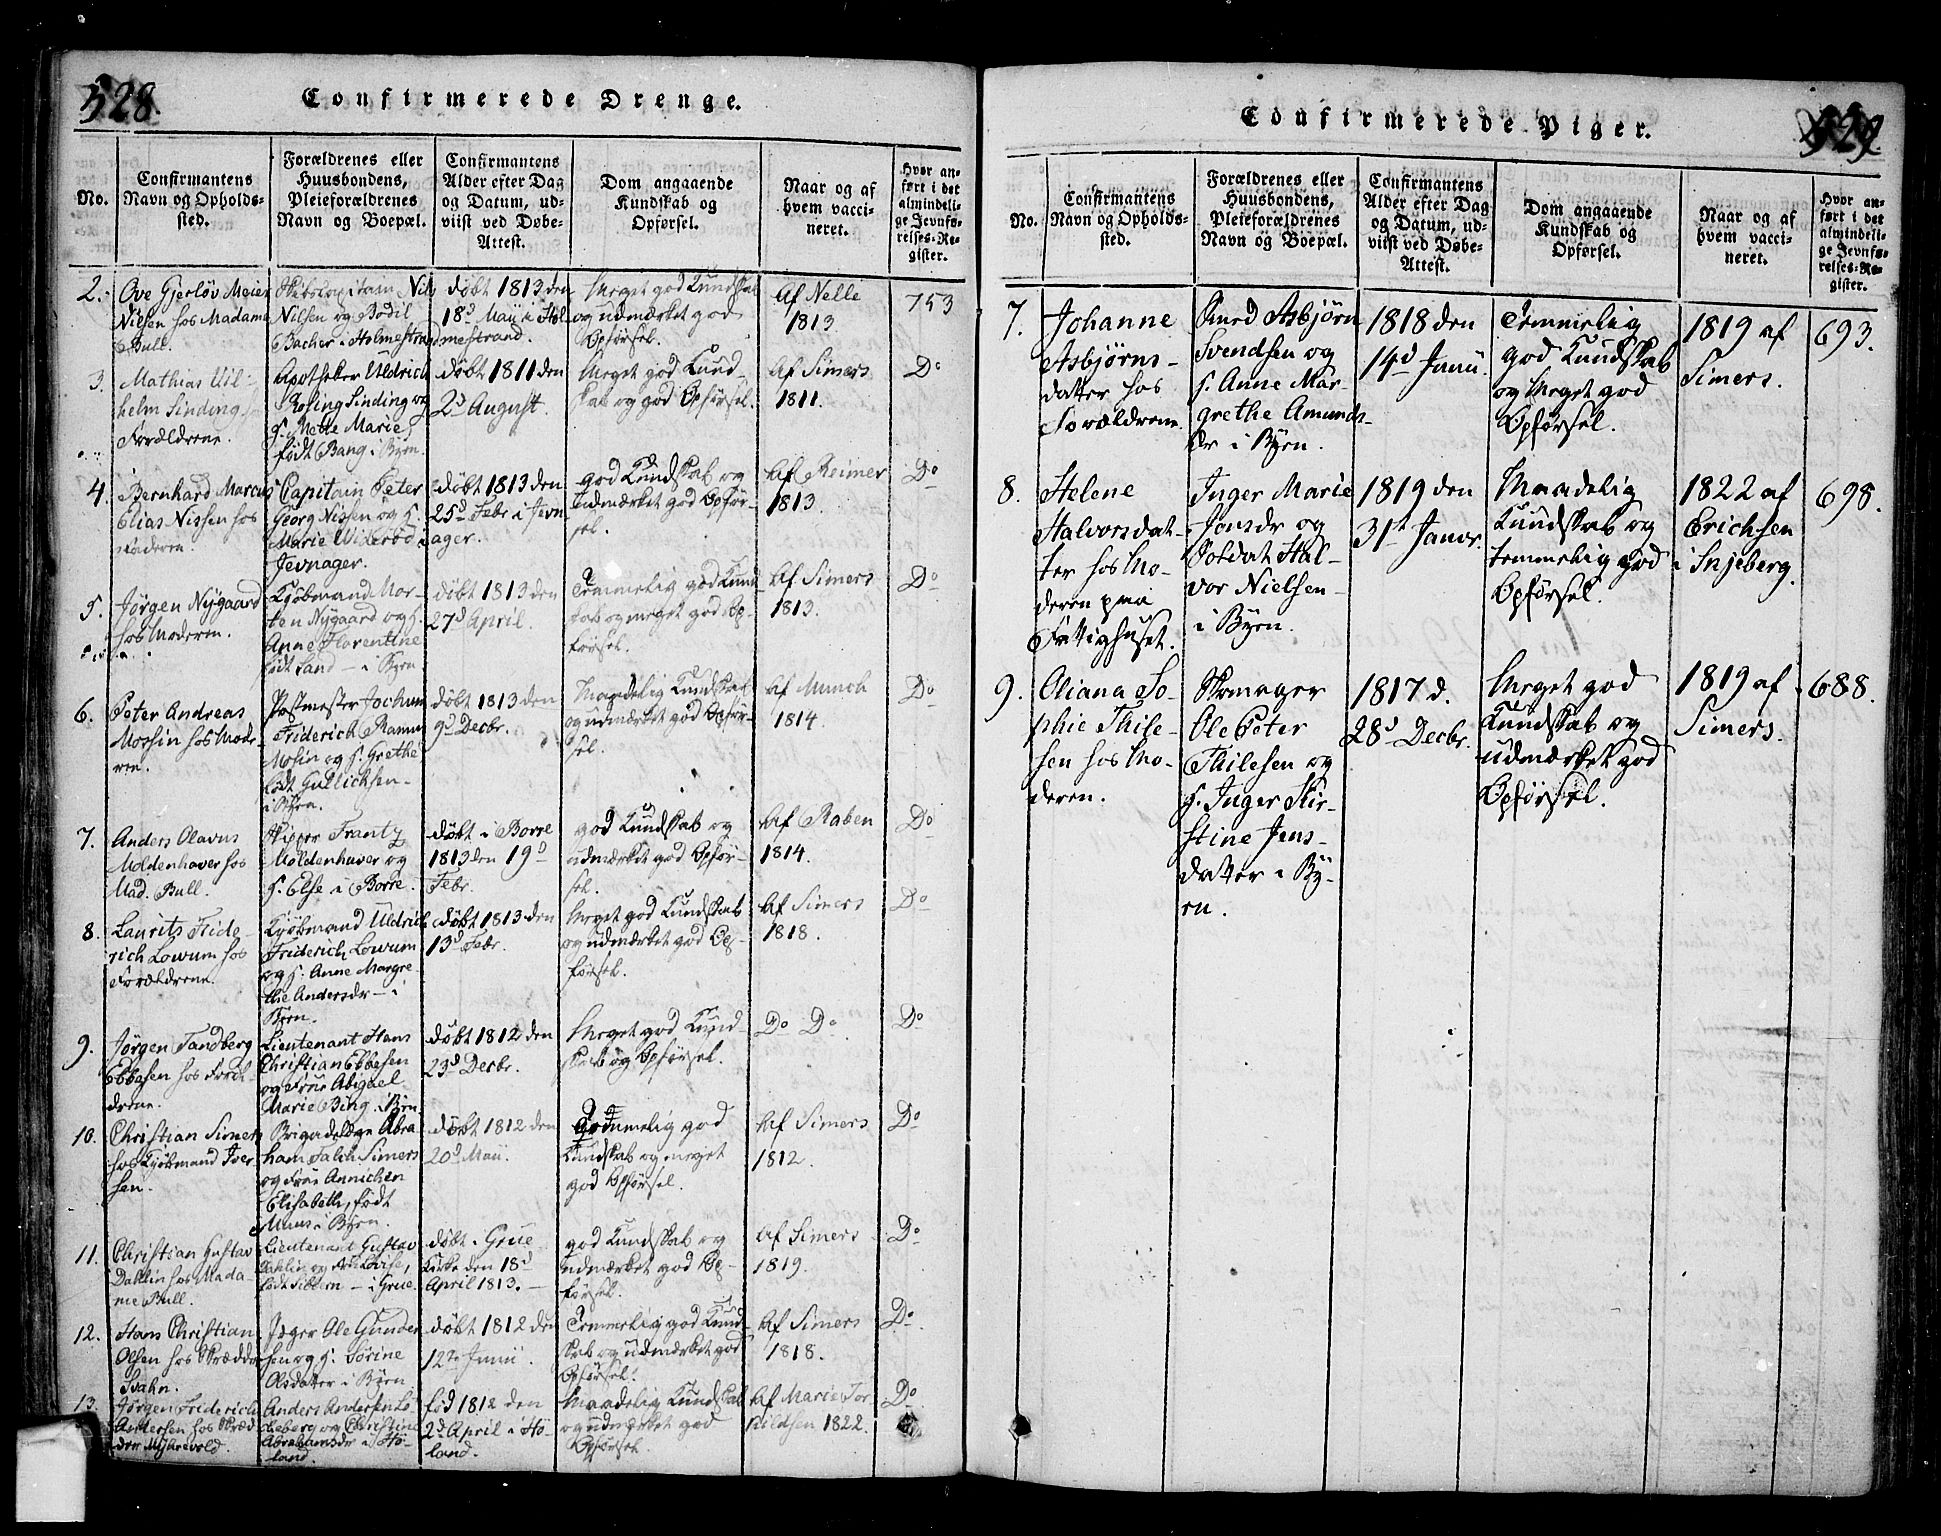 528.
Confirmerede Drenge.
No.
Confirmantens
Navn og Opholds-
sted.
Forældrenes eller
Huusbondens,
Pleieforældrenes
Navn og Boepæl.
Confirmantens
Alder efter Dag
og Datum, ud-
viist ved Døbe-
Attest.
Dom angaaende
Kundskab og
Opførsel.
Naar og af
hvem vacci-
neret.
Hvor an-
ført i det
almindeli-
ge Jevnfø-
relses-Re-
gister.
2.
Ove Gjerløv Meier
Nilsen hos Madame
Bull.
Skibscapitain Nils
Nilsen og Bodil
Bacher i Holmestrand
døbt 1813 den
18d Maii i Hol-
mestrand.
Meget god Kundskab
og udmærket god
Opførsel.
Af Nelle
1813
753
3.
Mathias Vil-
helm Sinding hos
Forældrene.
Apotheker Uldrich
Rosing Sinding og
H. Mette Marie
født Bang i Byen.
døbt 1811 den
2d August.
Meget god Kund-
skab og god Opførsel.
Af Simers
1811.
Do
4.
Bernhard Marcus
Elias Nissen hos
Faderen.
Capitain Peter
Georg Nissen og H.
Marie Wideröe i
Jevnager.
døbt 1813 den
25d Febr. i Jevn
ager.
god Kundskab og
udmærket god Opfør-
sel.
Af Reimer
1813.
Do
5.
Jørgen Nygaard
hos Moderen.
Kjøbmand Mor-
ten Nygaard og H.
Anne Florentine
født Land - i Byen
døbt 1813 den
27d April.
Temmelig god Kund
skab og meget god Op-
førsel.
Af Simers
1813.
Do
6.
Peter Andreas
Mossin hos Mode-
ren.
Postmester Jochum
Friderich Ramm
Mosin og H. Grethe
født Gullichsen -
i Byen.
døbt 1813 den
9d Decbr.
Maadelig Kundskab
og udmærket god Opfør-
sel.
Af Munch
1814.
Do
7.
Anders Olavus
Moldenhaver hos
Mad. Bull.
Skipper Frantz
Moldenhaver og
H. Else i Borre.
døbt i Borre
1813 den 19d
Febr.
god Kundskab og
udmærket god Opfør-
sel.
Af Raben
1814.
Do
8.
Laurits Fride-
rich Lowum hos
Forældrene.
Kjøbmand Uldrich
Friderich Lowum
og H. Anne Margre-
the Andersdr - i
Byen.
døbt 1813 den
13d Febr.
Meget god Kundskab
og udmærket god Op-
førsel.
Af Simers
1818.
Do
9.
Jørgen Tandberg
Ebbesen hos Foræl-
drene.
Lieutenant Hans
Christian Ebbesen
og Frue Abigael
Marie Bing i Byen
døbt 1812 den
23d Decbr.
Meget god Kund-
skab og Opførsel.
Do Do
Do
10.
Christian Simers
hos Kjøbmand Iver
sen.
Brigadelæge Abra
ham Falch Simers
og Frue Annichen
Elisabeth, født
Muus i Byen.
døbt 1812 den
20d Maii.
Temmelig god
Kundskab og meget
god Opførsel.
Af Simers
1812.
Do
11.
Christian Gustav
Dahlin hos Mada-
me Bull.
Lieutenant Gustav
Dahlin og Lovise,
født Sibbern - i Grue.
døbt i Grue
Kirke den 18d
April 1813. -
god Kundskab og
udmærket god Op-
førsel.
Af Simers
1819.
Do
12.
Hans Christian
Olsen hos Skrædder
Svahn.
Jæger Ole Gunder
sen og H. Sørine
Olsdatter i Byen
døbt 1812 den
12te Junii.
Temmelig god Kund
skab og udmærket god
Opførsel.
Af Simers
1818.
Do
13.
Jørgen Friderich
Andersen hos Skræd
der Myhrevold.
Anders Andersen Lo
cheberg og Christine
Abrahamsdr i Ho-
land.
fød 1812 den
2d April i Hö-
land.
Maadelig Kundskab
og udmærket god
Opførsel.
Af Marie Tor
kildsen 1822.
Do
Confirmerede Piger.
529.
No.
Confirmantens
Navn og Opholds-
sted.
Forældrenes eller
Huusbondens,
Pleieforældrenes
Navn og Boepæl.
Confirmantens
Alder efter Dag
og Datum, ud-
viist ved Døbe-
Attest.
Dom angaaende
Kundskab og
Opførsel.
Naar og af
hvem vacci-
neret.
Hvor an-
ført i det
almindeli-
ge Jevnfø-
relses-Re-
gister.
7.
Johanne
Asbjørns-
datter hos
Forældrene.
Smed Asbjørn
Svendsen og
H. Anne Mar-
grethe Amunds-
dr i Byen.
1818 den
14d Junii.
Temmelig
god Kundskab
og Meget god
Opførsel.
1819 af
Simers.
693.
8.
Helene
Halvorsdat-
ter hos Mo-
deren paa
Fattighuset.
Inger Marie
Jonsdr og
Soldat Hal-
vor Nielsen -
i Byen.
1819 den
31te Janur.
Maadelig
Kundskab og
temmelig god
Opførsel.
1822 af
Erichsen
i Injeberg.
698.
9.
Oliana So-
phie Thile-
sen hos Mo-
deren.
Skomager
Ole Peter
Thilesen og
H. Inger Kir-
stine Jens-
datter i By-
en.
1817 d.
28d Decbr.
Meget god
Kundskab og
udmærket god
Opførsel.
1819 af
Simers.
688.